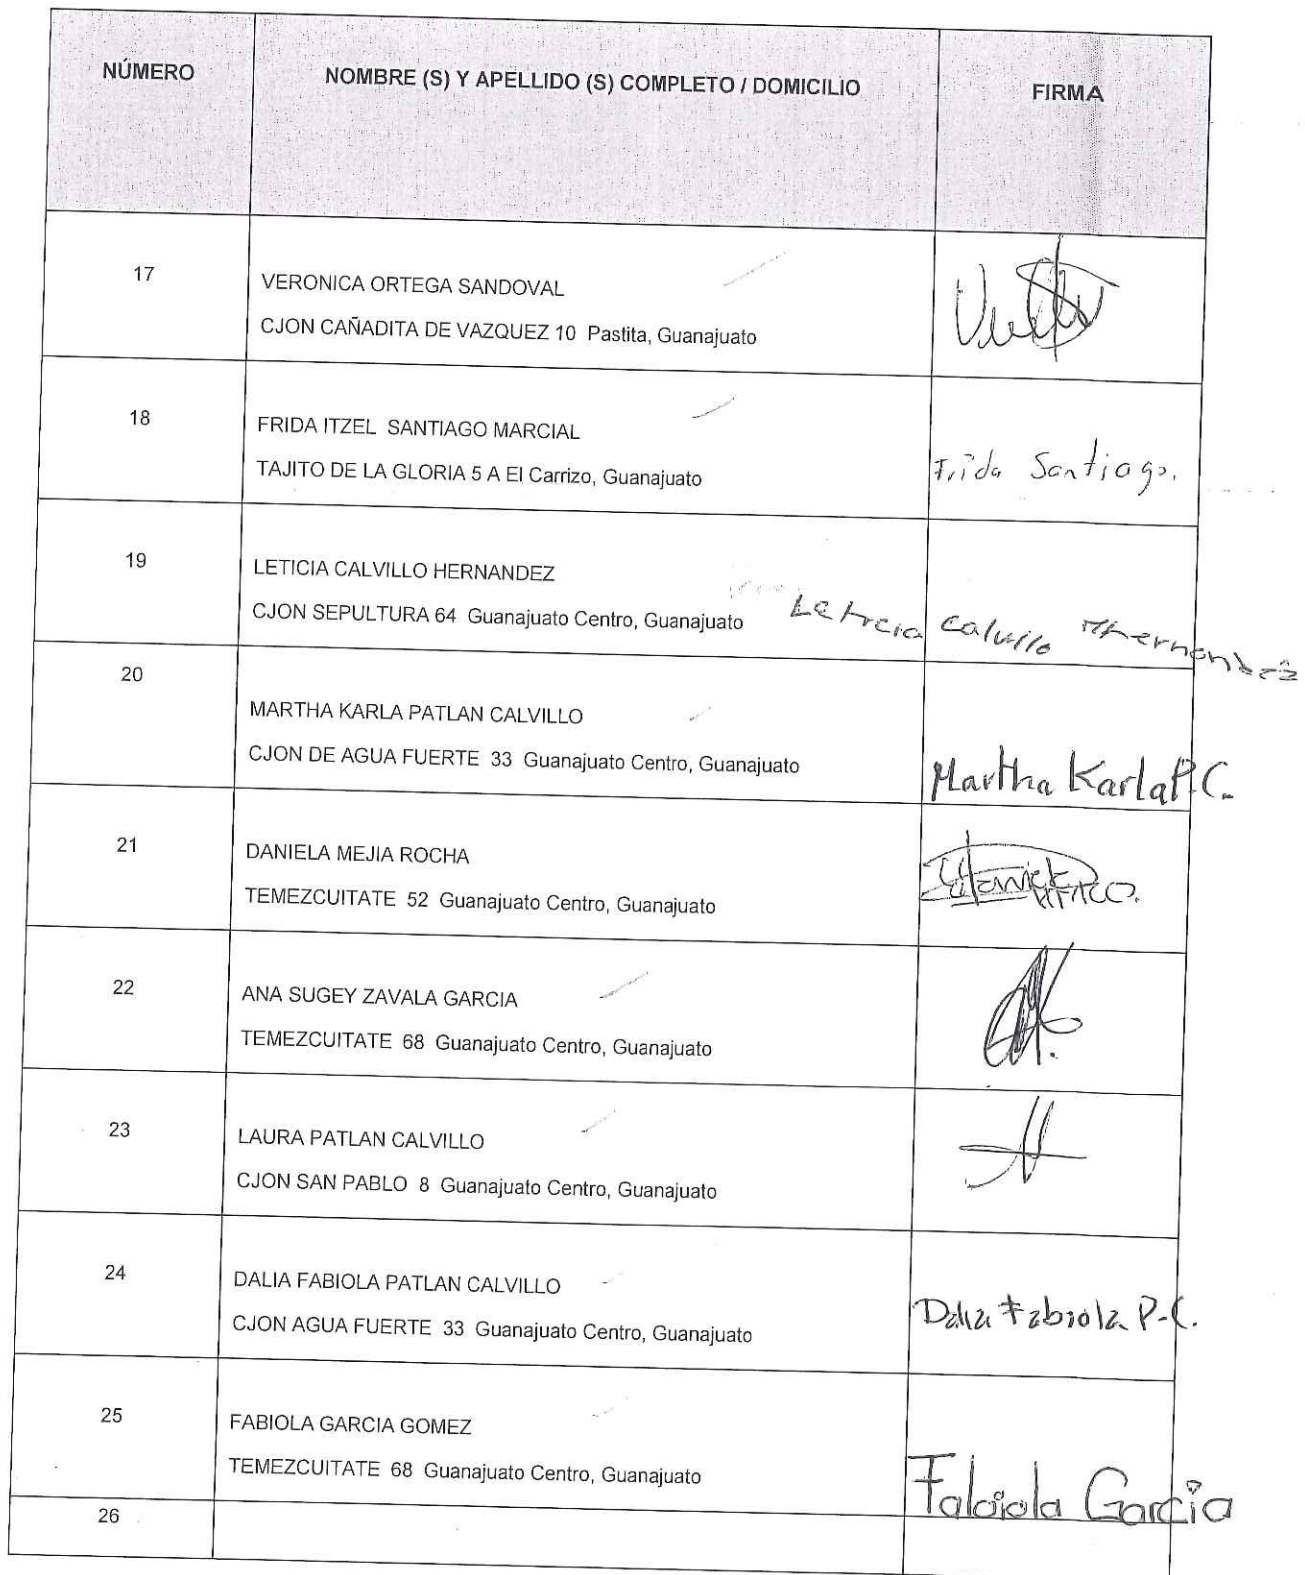 NÚMERO
NOMBRE (S) Y APELLIDO (S) COMPLETO / DOMICILIO
FIRMA
17
VERONICA ORTEGA SANDOVAL
CJON CAÑADITA DE VAZQUEZ 10 Pastita, Guanajuato
18
FRIDA ITZEL SANTIAGO MARCIAL
TAJITO DE LA GLORIA 5 A El Carrizo, Guanajuato
Frida Santiago.
19
LETICIA CALVILLO HERNANDEZ
CJON SEPULTURA 64 Guanajuato Centro, Guanajuato
Leticia Calvillo
20
MARTHA KARLA PATLAN CALVILLO
CJON DE AGUA FUERTE 33 Guanajuato Centro, Guanajuato
Martha Karla P.C.
21
DANIELA MEJIA ROCHA
TEMEZCUITATE 52 Guanajuato Centro, Guanajuato
22
ANA SUGEY ZAVALA GARCIA
TEMEZCUITATE 68 Guanajuato Centro, Guanajuato
23
LAURA PATLAN CALVILLO
CJON SAN PABLO 8 Guanajuato Centro, Guanajuato
24
DALIA FABIOLA PATLAN CALVILLO
CJON AGUA FUERTE 33 Guanajuato Centro, Guanajuato
Dalia Fabiola P.C.
25
FABIOLA GARCIA GOMEZ
TEMEZCUITATE 68 Guanajuato Centro, Guanajuato
Fabiola Garcia
26